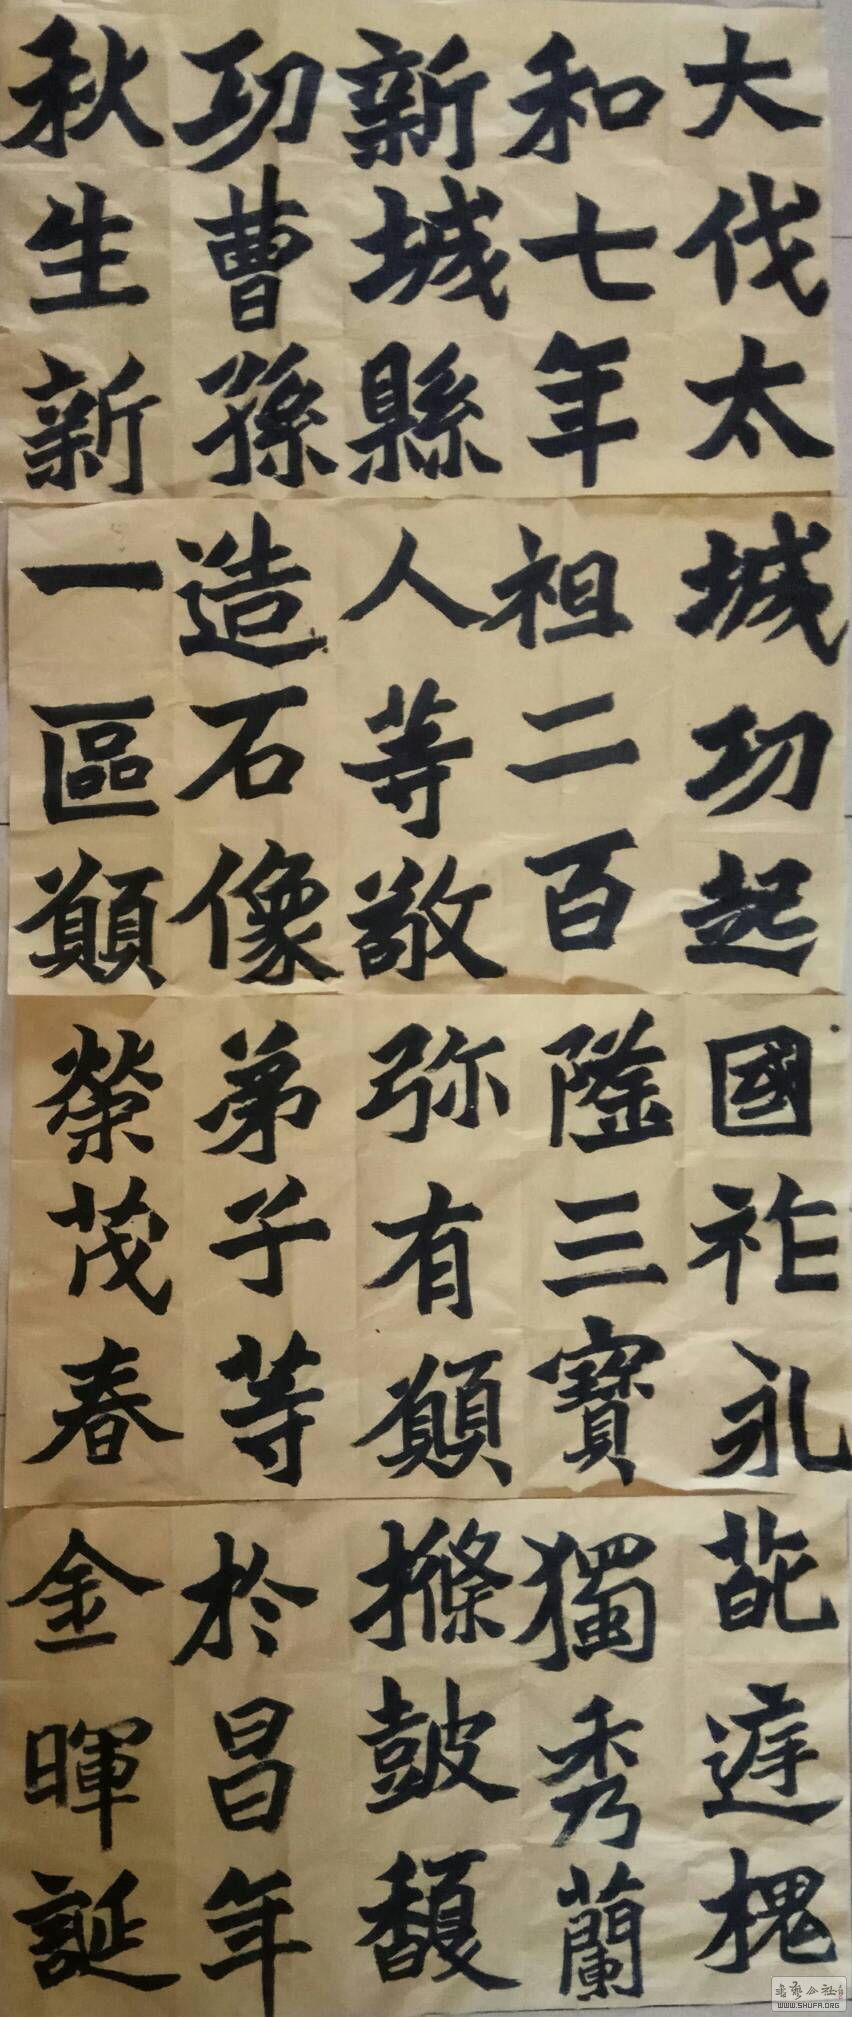 大伐太
和七年
新城縣
功曹孫
秋生新
城功起
祖二百
人等敬
造石像
一區願
國祚永
隆三寶
弥有願
弟子等
榮茂春
葩庭槐
獨秀蘭
條鼓馥
於昌年
金暉誕
書藝公社
WWW.SHUFA.ORG